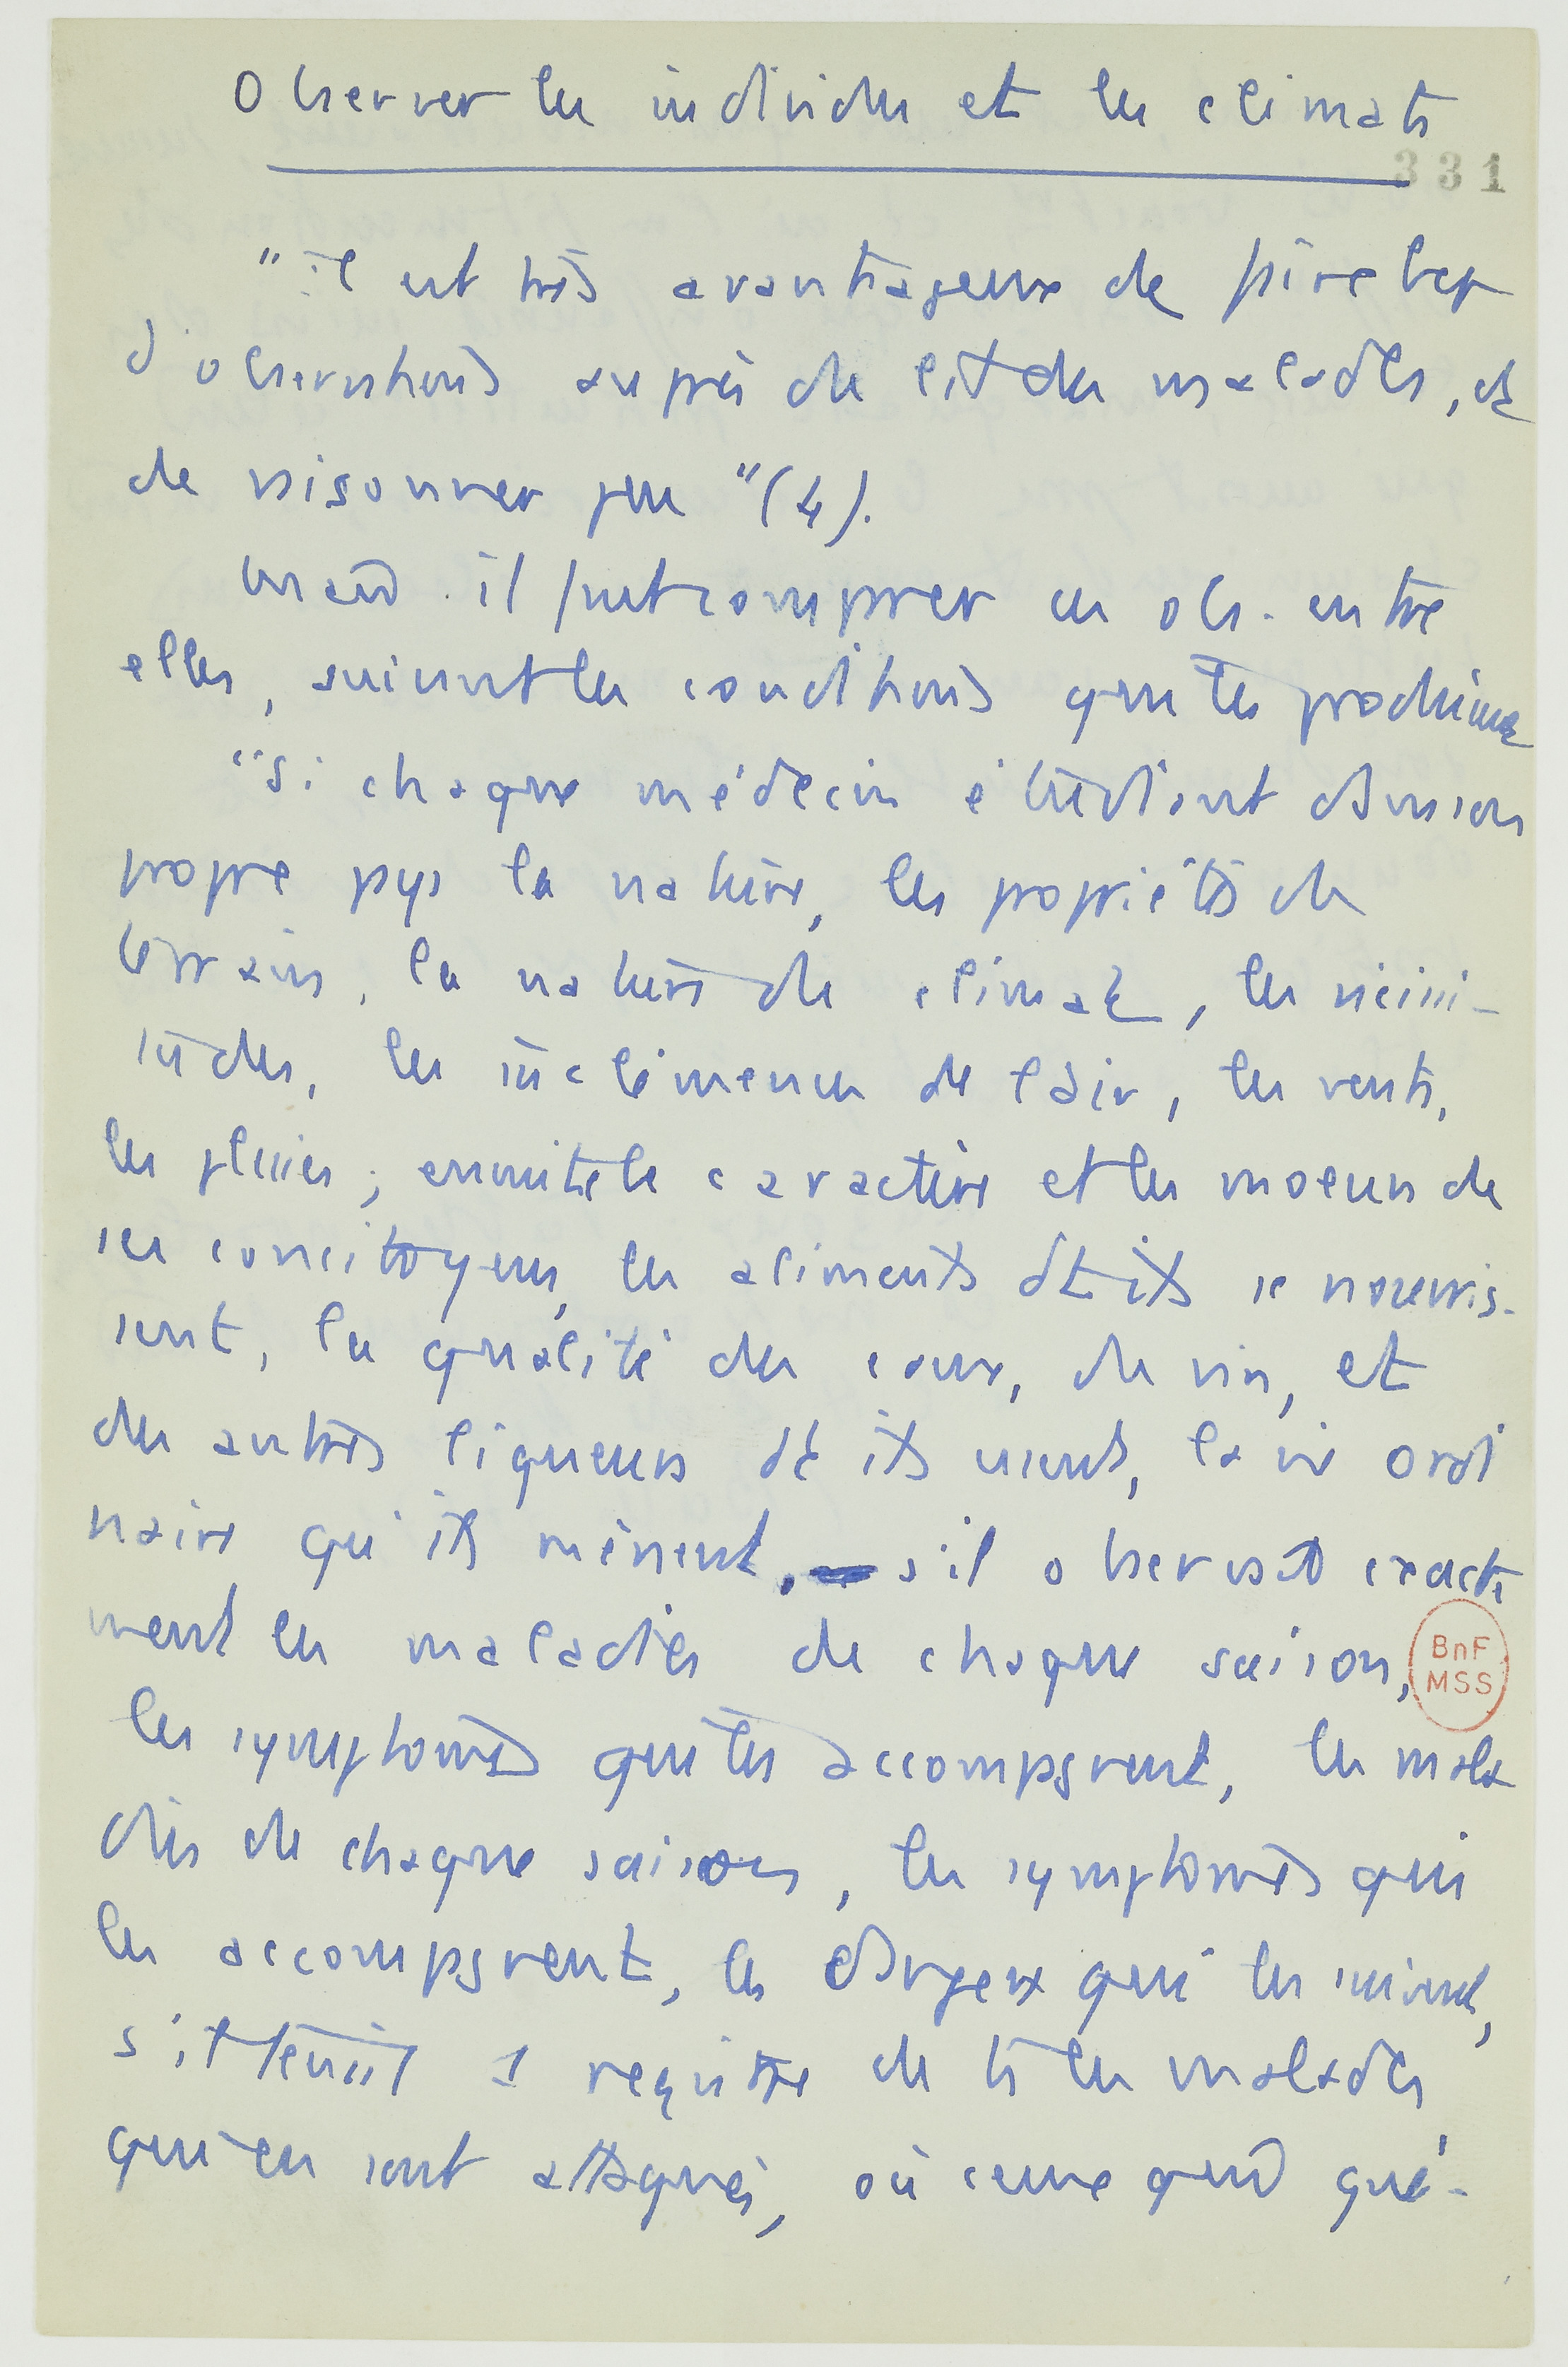 Observer les individus et les climats
331
"il est très avantageux de faire bcp
d'observations auprès du lit des malades, et
de raisonner peu" (4).
Mais il faut comparer ces obs. entre
elles, suivant les conditions qui les produisent
"Si chaque médecin étudiant dans son
propre pays la nature, les propriétés du
terrain, la nature du climat, les vicissi-
tudes, les inclémences de l'air, les vents,
les pluies ; ensuite le caractère et les moeurs de
ses concitoyens, les aliments dt ils se nourris-
sent, la qualité des eaux, du vin, et
des autres liqueurs dt ils usent, la vie ordi
naire qu'ils mènent, s'il observait exacte
ment les maladies de chaque saison,
BnF
MSS
les symptomes qui les accompagnent, les mala
dies de chaque saison, les symptomes qui
les accompagnent, les dangers qui les suivent,
s'il tenait 1 registre de ts les malades
qui en sont attaqués, où ceux qui gué-